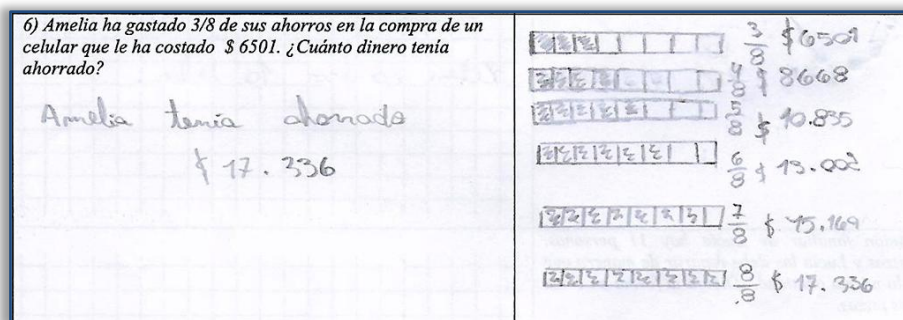 6) Amelia ha gastado 3/8 de sus ahorros en la compra de un
celular que le ha costado $ 6501. ¿Cuánto dinero tenía
ahorrado?
Amelia tenia ahorrado
$ 17.336
3/8 $6501
4/8 $ 8668
5/8 $ 10.835
6/8 $ 13.002
7/8 $ 15.169
8/8 $ 17.336